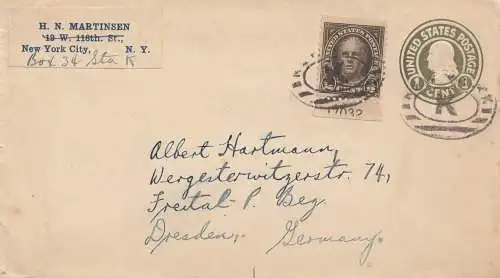 H. N. MARTINSEN
19 W. 118th. St.,
New York City, N. Y.
Box 34 Sta K
UNITED STATES POSTAGE
UNITED STATES POSTAGE
1 CENT 1
K
Albert Hartmann,
Wergesterwitzerstr. 74,
Freital - P. Bez.
Dresden, Germany.